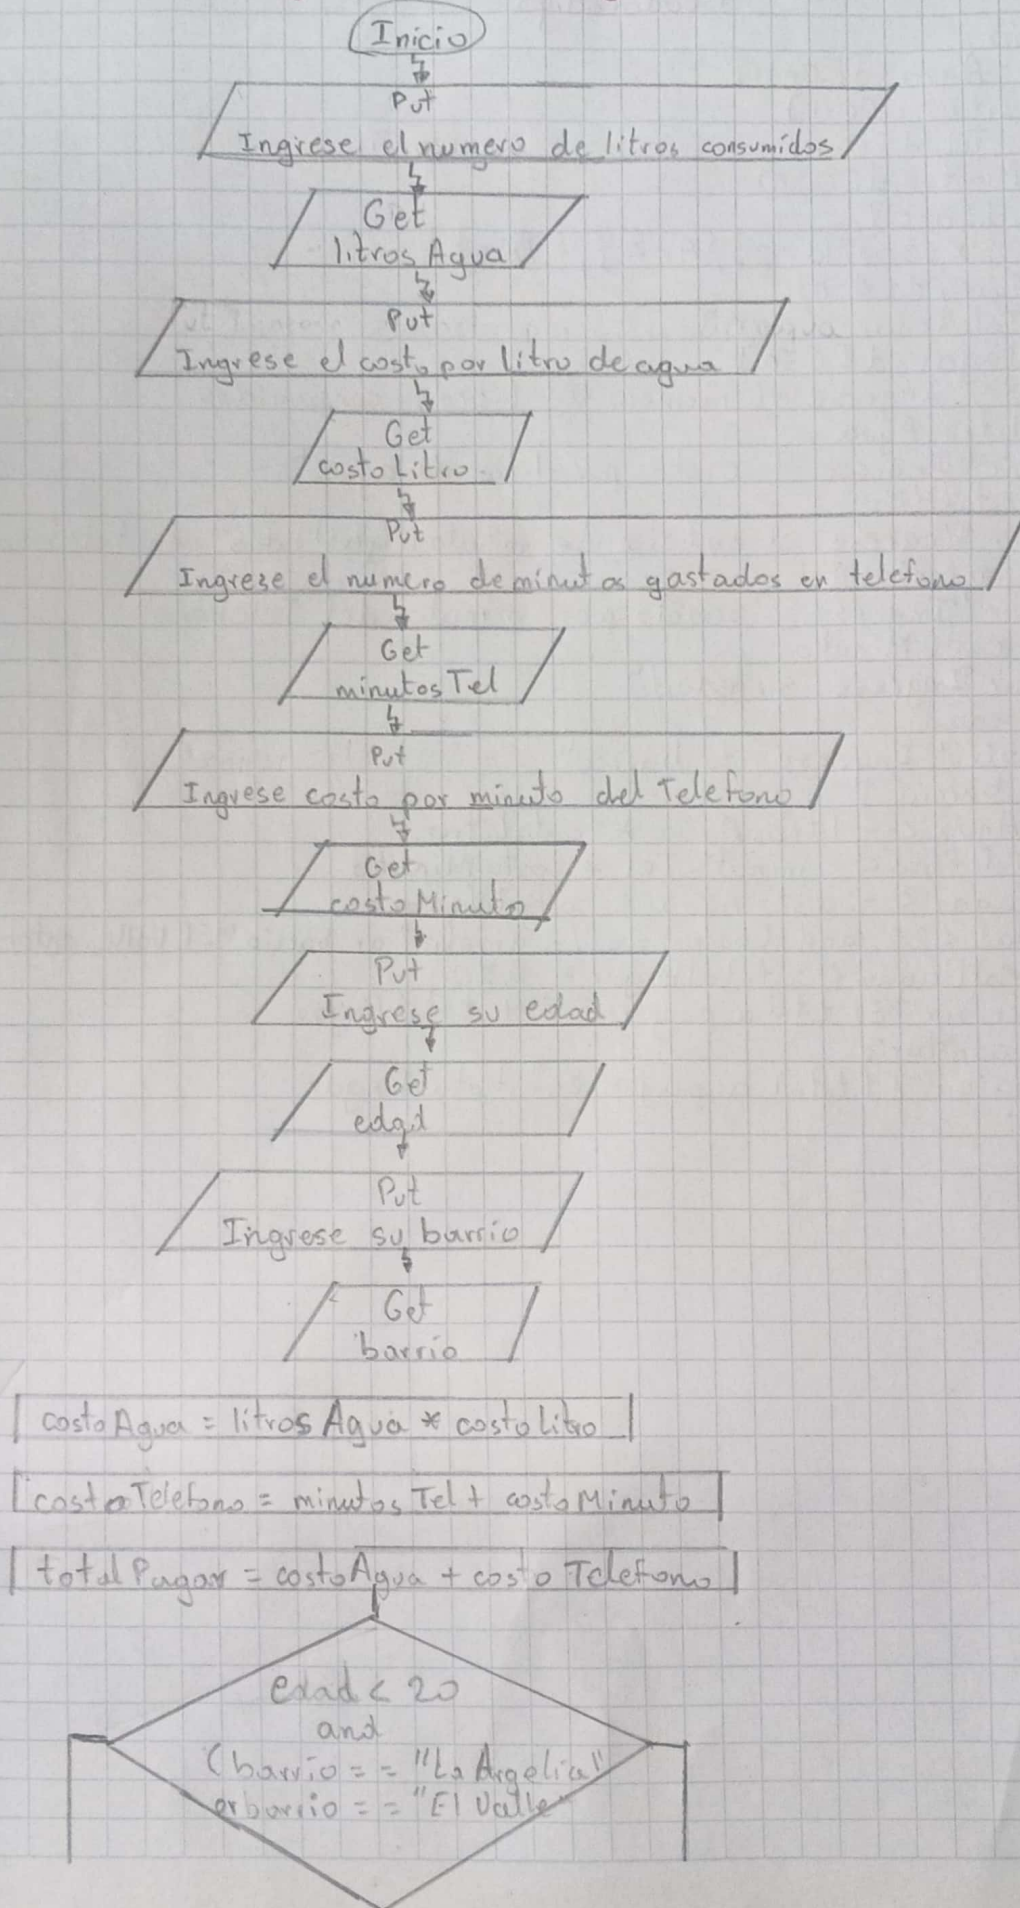 Inicio
Put
Ingrese el numero de litros consumidos
Get
litros Agua
Put
Ingrese el costo por litro de agua
Get
costo Litro
Put
Ingrese el numero de minutos gastados en telefono
Get
minutos Tel
Put
Ingrese costo por minuto del Telefono
Get
costo Minuto
Put
Ingrese su edad
Get
edad
Put
Ingrese su barrio
Get
barrio
costo Agua = litros Agua * costo Litro
costo Telefono = minutos Tel + costo Minuto
total Pagar = costo Agua + costo Telefono
edad < 20
and
(barrio = = "La Argelia"
or barrio = = "El Valle"